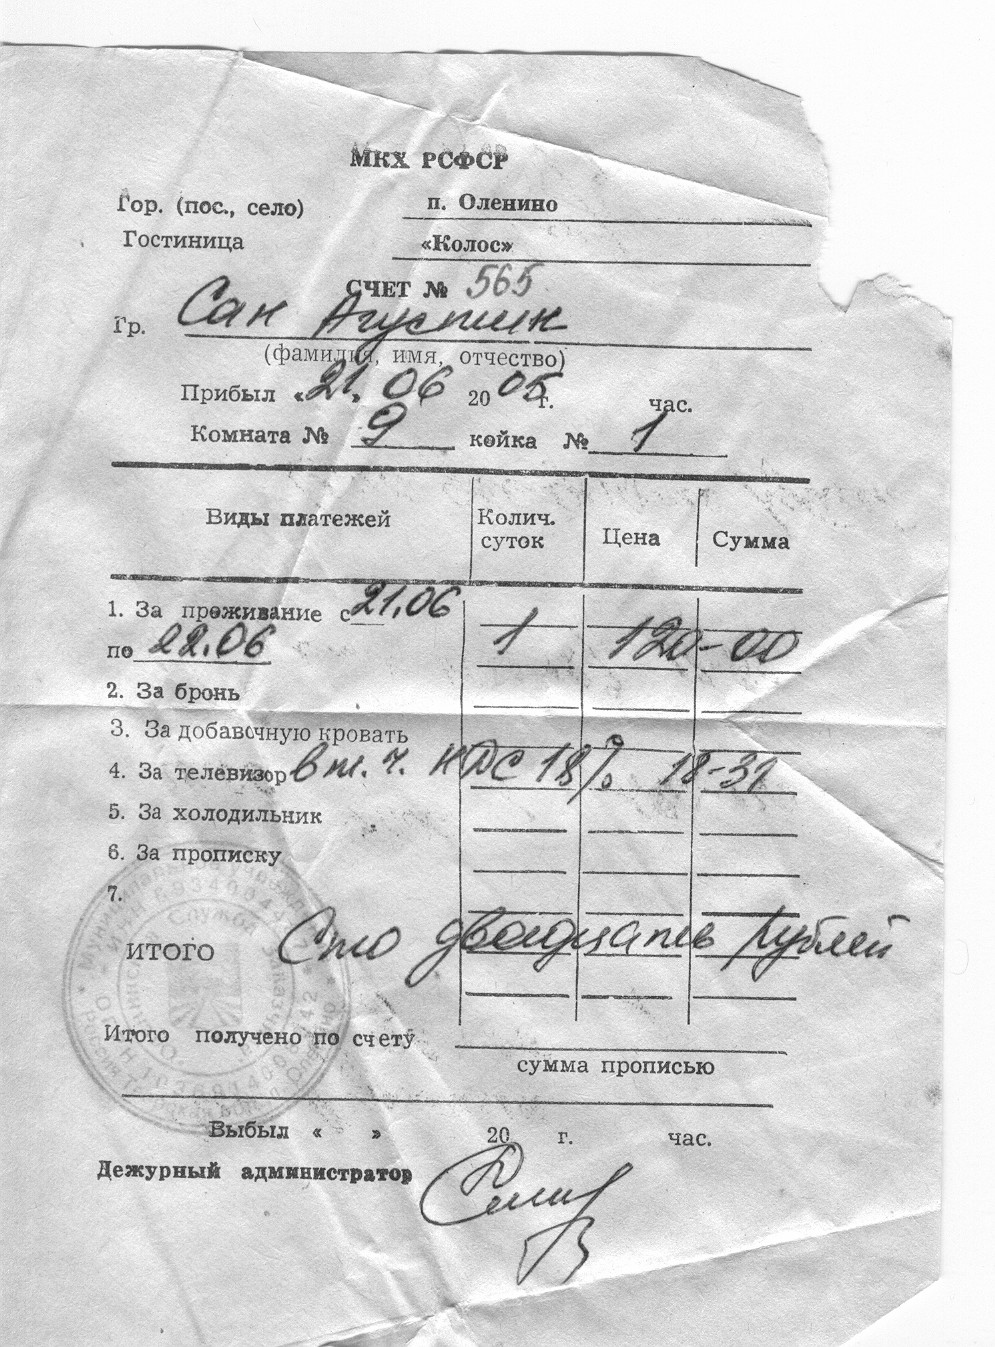 МКХ РСФСР
Гор. (пос., село) п. Оленино
Гостиница «Колос»
СЧЕТ № 565
Гр. Сан Агустин
(фамилия, имя, отчество)
Прибыл «21» 06 2005 г. час.
Комната № 9 койка № 1
Виды платежей Колич. суток Цена Сумма
1. За проживание с 21.06
по 22.06 1 120-00
2. За бронь
3. За добавочную кровать
4. За телевизор в т. ч. НДС 18% 18-31
5. За холодильник
6. За прописку
7.
ИТОГО Сто двадцать рублей
Итого получено по счету
сумма прописью
Выбыл « » 20 г. час.
Дежурный администратор